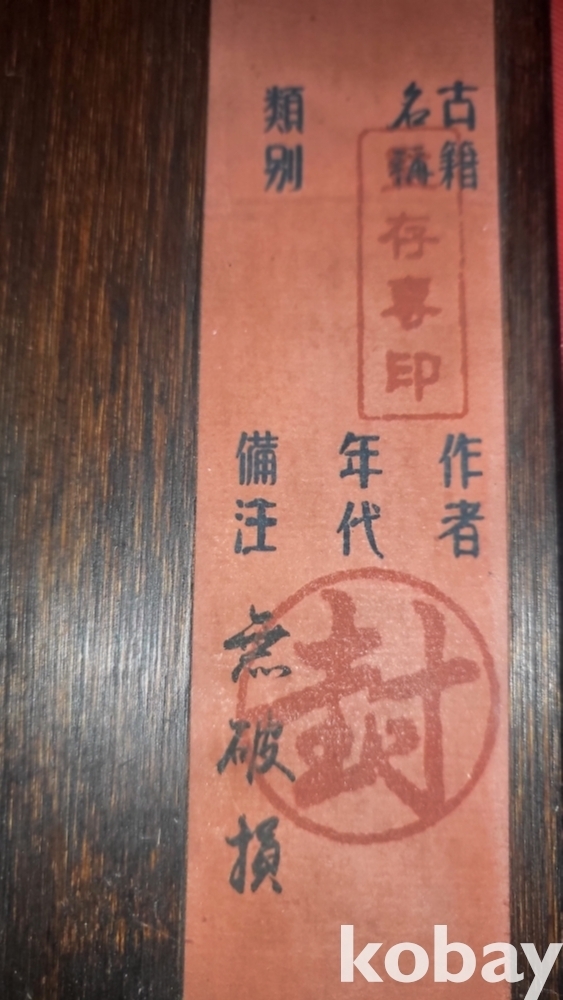 古籍
名稱
類别
作者
年代
備注
無破損
存真印
封
kobay